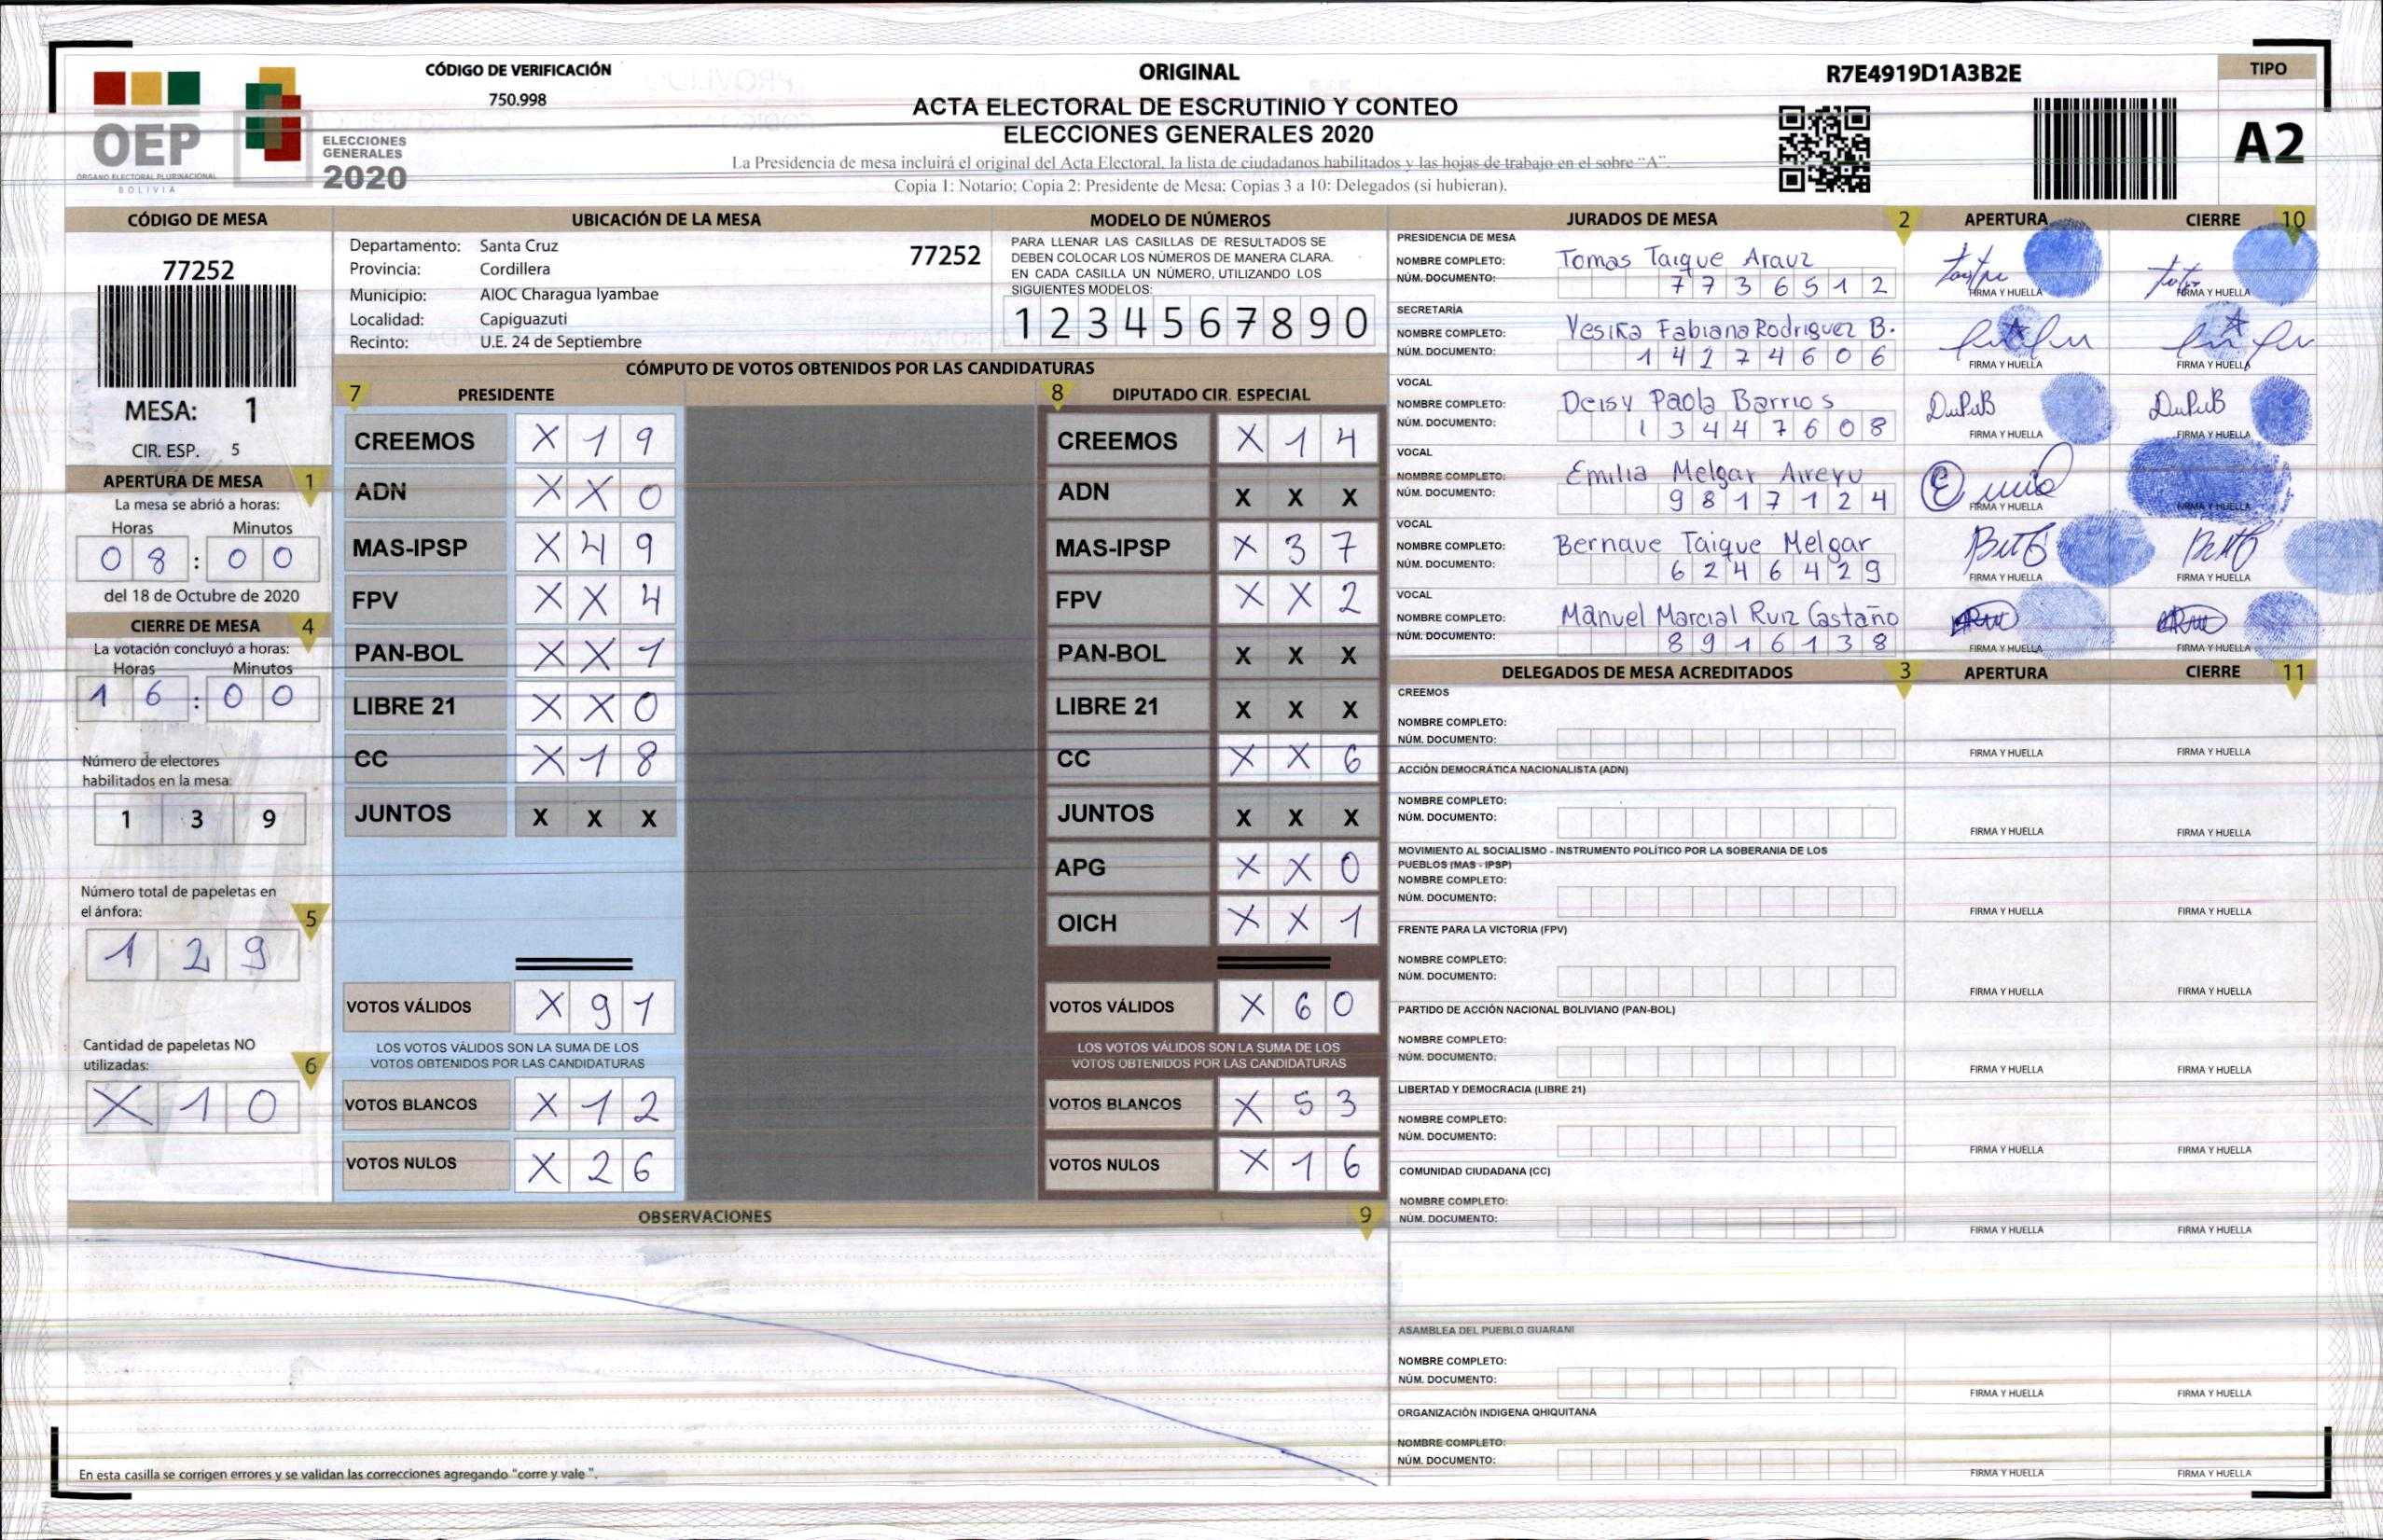 OEP
ÓRGANO ELECTORAL PLURINACIONAL
BOLIVIA
ELECCIONES
GENERALES
2020
CÓDIGO DE VERIFICACIÓN
750.998
ORIGINAL
ACTA ELECTORAL DE ESCRUTINIO Y CONTEO
ELECCIONES GENERALES 2020
La Presidencia de mesa incluirá el original del Acta Electoral, la lista de ciudadanos habilitados y las hojas de trabajo en el sobre "A".
Copia 1: Notario; Copia 2: Presidente de Mesa; Copias 3 a 10: Delegados (si hubieran).
R7E4919D1A3B2E
TIPO
A2
CÓDIGO DE MESA
77252
MESA: 1
CIR. ESP. 5
APERTURA DE MESA 1
La mesa se abrió a horas:
Horas Minutos
0 8 : 0 0
del 18 de Octubre de 2020
CIERRE DE MESA 4
La votación concluyó a horas:
Horas Minutos
1 6 : 0 0
Número de electores
habilitados en la mesa:
1 3 9
Número total de papeletas en
el ánfora: 5
1 2 9
Cantidad de papeletas NO
utilizadas: 6
X 1 0
UBICACIÓN DE LA MESA
Departamento: Santa Cruz 77252
Provincia: Cordillera
Municipio: AIOC Charagua Iyambae
Localidad: Capiguazuti
Recinto: U.E. 24 de Septiembre
MODELO DE NÚMEROS
PARA LLENAR LAS CASILLAS DE RESULTADOS SE
DEBEN COLOCAR LOS NÚMEROS DE MANERA CLARA.
EN CADA CASILLA UN NÚMERO, UTILIZANDO LOS
SIGUIENTES MODELOS:
1 2 3 4 5 6 7 8 9 0
CÓMPUTO DE VOTOS OBTENIDOS POR LAS CANDIDATURAS
7 PRESIDENTE
CREEMOS X 1 9
ADN X X 0
MAS-IPSP X 4 9
FPV X X 4
PAN-BOL X X 1
LIBRE 21 X X 0
CC X 1 8
JUNTOS X X X
VOTOS VÁLIDOS X 9 1
LOS VOTOS VÁLIDOS SON LA SUMA DE LOS
VOTOS OBTENIDOS POR LAS CANDIDATURAS
VOTOS BLANCOS X 1 2
VOTOS NULOS X 2 6
8 DIPUTADO CIR. ESPECIAL
CREEMOS X 1 4
ADN X X X
MAS-IPSP X 3 7
FPV X X 2
PAN-BOL X X X
LIBRE 21 X X X
CC X X 6
JUNTOS X X X
APG X X 0
OICH X X 1
VOTOS VÁLIDOS X 6 0
LOS VOTOS VÁLIDOS SON LA SUMA DE LOS
VOTOS OBTENIDOS POR LAS CANDIDATURAS
VOTOS BLANCOS X 5 3
VOTOS NULOS X 1 6
OBSERVACIONES 9
En esta casilla se corrigen errores y se validan las correcciones agregando "corre y vale ".
JURADOS DE MESA 2 APERTURA CIERRE 10
PRESIDENCIA DE MESA
NOMBRE COMPLETO: Tomas Taique Arauz
NÚM. DOCUMENTO: 7 7 3 6 5 1 2
FIRMA Y HUELLA FIRMA Y HUELLA
SECRETARÍA
NOMBRE COMPLETO: Yesika Fabiana Rodriguez B.
NÚM. DOCUMENTO: 1 4 2 7 4 6 0 6
FIRMA Y HUELLA FIRMA Y HUELLA
VOCAL
NOMBRE COMPLETO: Deisy Paola Barrios
NÚM. DOCUMENTO: 1 3 4 4 7 6 0 8
FIRMA Y HUELLA FIRMA Y HUELLA
VOCAL
NOMBRE COMPLETO: Emilia Melgar Aireyu
NÚM. DOCUMENTO: 9 8 1 7 1 2 4
FIRMA Y HUELLA FIRMA Y HUELLA
VOCAL
NOMBRE COMPLETO: Bernave Taique Melgar
NÚM. DOCUMENTO: 6 2 4 6 4 2 9
FIRMA Y HUELLA FIRMA Y HUELLA
VOCAL
NOMBRE COMPLETO: Manuel Marcial Ruiz Castaño
NÚM. DOCUMENTO: 8 9 1 6 1 3 8
FIRMA Y HUELLA FIRMA Y HUELLA
DELEGADOS DE MESA ACREDITADOS 3 APERTURA CIERRE 11
CREEMOS
NOMBRE COMPLETO:
NÚM. DOCUMENTO:
FIRMA Y HUELLA FIRMA Y HUELLA
ACCIÓN DEMOCRÁTICA NACIONALISTA (ADN)
NOMBRE COMPLETO:
NÚM. DOCUMENTO:
FIRMA Y HUELLA FIRMA Y HUELLA
MOVIMIENTO AL SOCIALISMO - INSTRUMENTO POLÍTICO POR LA SOBERANIA DE LOS
PUEBLOS (MAS - IPSP)
NOMBRE COMPLETO:
NÚM. DOCUMENTO:
FIRMA Y HUELLA FIRMA Y HUELLA
FRENTE PARA LA VICTORIA (FPV)
NOMBRE COMPLETO:
NÚM. DOCUMENTO:
FIRMA Y HUELLA FIRMA Y HUELLA
PARTIDO DE ACCIÓN NACIONAL BOLIVIANO (PAN-BOL)
NOMBRE COMPLETO:
NÚM. DOCUMENTO:
FIRMA Y HUELLA FIRMA Y HUELLA
LIBERTAD Y DEMOCRACIA (LIBRE 21)
NOMBRE COMPLETO:
NÚM. DOCUMENTO:
FIRMA Y HUELLA FIRMA Y HUELLA
COMUNIDAD CIUDADANA (CC)
NOMBRE COMPLETO:
NÚM. DOCUMENTO:
FIRMA Y HUELLA FIRMA Y HUELLA
ASAMBLEA DEL PUEBLO GUARANI
NOMBRE COMPLETO:
NÚM. DOCUMENTO:
FIRMA Y HUELLA FIRMA Y HUELLA
ORGANIZACIÓN INDIGENA QHIQUITANA
NOMBRE COMPLETO:
NÚM. DOCUMENTO:
FIRMA Y HUELLA FIRMA Y HUELLA